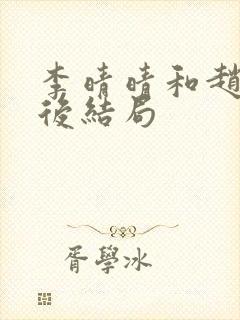 李晴晴和趙
後結局
胥學冰